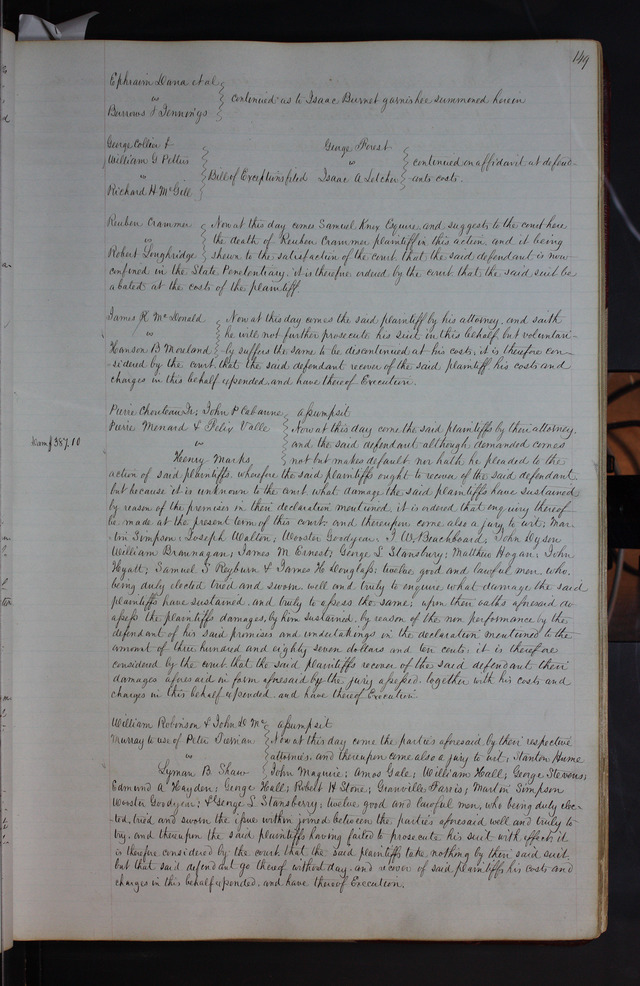 149
Ephraim Dana et al
vs
Burrows & Jennings
continued as to Isaac Burnet garnishee summoned herein
George Collier &
William G Pettus
vs
Richard H McGill
Bill of Exceptions filed
George Forest
vs
Isaac A Letcher
continued on affidavit at defend-
ants costs.
Reuben Crammer
vs
Robert Loughridge
Now at this day comes Samuel Knox Esquire, and suggests to the court here
the death of Reuben Crammer plaintiff in this action, and it being
shewn to the satisfaction of the court that the said defendant is now
confined in the State Penetentiary, it is therefore ordered by the court that the said suit be
abated at the costs of the plaintiff.
James R McDonald
vs
Hanson B Moreland
Now at this day comes the said plaintiff by his attorney, and saith
he will not further prosecute his suit in this behalf, but voluntari-
ly suffers the same to be discontinued at his costs, it is therefore con-
sidered by the court, that the said defendant recover of the said plaintiff his costs and
charges in this behalf expended, and have thereof Execution.
Pierre Chouteau Jr; John P Cabanne
Pierre Menard & Felix Valle
vs
Henry Marks
assumpsit
$387.10
Now at this day come the said plaintiffs by their attorney,
and the said defendant although demanded comes
not but makes default, nor hath he pleaded to the
action of said plaintiffs, wherefore the said plaintiffs ought to recover of the said defendant,
but because it is unknown to the court what damage the said plaintiffs have sustained
by reason of the premises in their declaration mentioned, it is ordered that enquiry thereof
be made at the present term of this court, and thereupon come also a jury to wit; Mar-
tin Simpson; Joseph Walton; Wooster Goodyear; J W Beachboard; John Dyson
William Brannagan; James M Ernest; George S Stansbury; Matthew Hogan; John
Hyatt; Samuel S Rayburn & James H Douglass; twelve good and lawful men who
being duly elected tried and sworn, well and truly to enquire what damage the said
plaintiffs have sustained, and truly to assess the same; upon their oaths aforesaid do
assess the plaintiffs damages, by him sustained, by reason of the non performance by the
defendant of his said promises and undertakings in the declaration mentioned to the
amount of three hundred and eighty seven dollars and ten cents; it is therefore
considered by the court that the said plaintiffs recover of the said defendant their
damages aforesaid in form aforesaid by the jury assessed, together with his costs and
charges in this behalf expended, and have thereof Execution
William Robinson & John D Mc
Murray to use of Peter
vs
Lyman B. Shaw
assumpsit
Now at this day come the parties aforesaid by their respective
attornies, and thereupon come also a jury to wit; Stanton Hume
John Maguire; Amos Gale; William Hall; George Stevens;
Edmund A Hayden; George Hall; Robert H Stone; Granville Farris; Martin Simpson
Wooster Goodyear; & George S Stansberry; twelve good and lawful men, who being duly elec-
ted, tried and sworn the issue within joined between the parties aforesaid well and truly to
try, and thereupon the said plaintiffs having failed to prosecute his suit with effect, it
is therefore considered by the court, that the said plaintiffs take nothing by their said suit,
but that said defendant go thereof without day, and recover of said plaintiffs his costs and
charges in this behalf expended, and have thereof Execution.